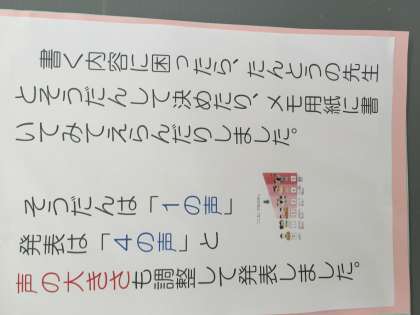 書く内容に困ったら、たんとうの先生
とそうだんして決めたり、メモ用紙に書
いてみてえらんだりしました。
そうだんは「1の声」
発表は「4の声」と
声の大きさも調整して発表しました。